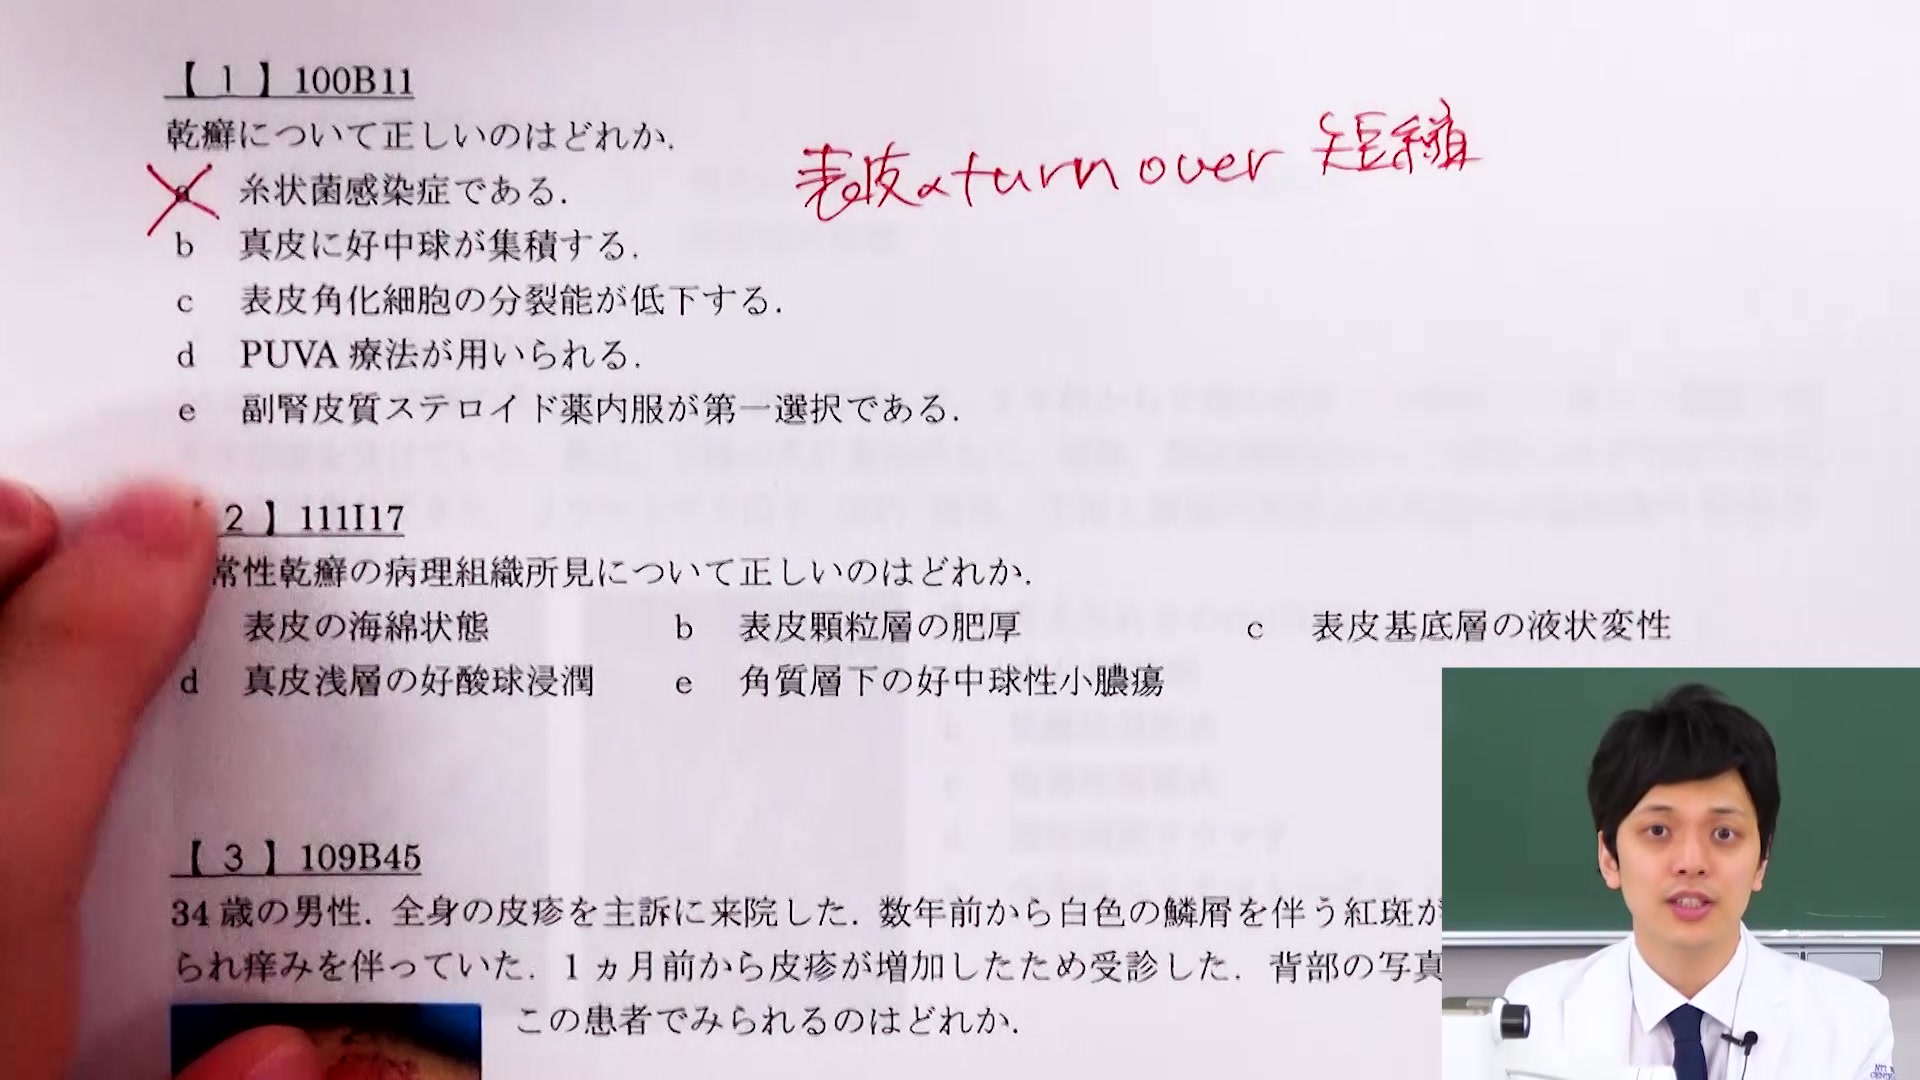 【 1 】100B11
乾癬について正しいのはどれか.
表皮のturn over 短縮
a 糸状菌感染症である.
b 真皮に好中球が集積する.
c 表皮角化細胞の分裂能が低下する.
d PUVA 療法が用いられる.
e 副腎皮質ステロイド薬内服が第一選択である.
2 】111I17
常性乾癬の病理組織所見について正しいのはどれか.
表皮の海綿状態 b 表皮顆粒層の肥厚 c 表皮基底層の液状変性
d 真皮浅層の好酸球浸潤 e 角質層下の好中球性小膿瘍
【 3 】109B45
34 歳の男性. 全身の皮疹を主訴に来院した. 数年前から白色の鱗屑を伴う紅斑が
られ痒みを伴っていた. 1 ヵ月前から皮疹が増加したため受診した. 背部の写真
この患者でみられるのはどれか.